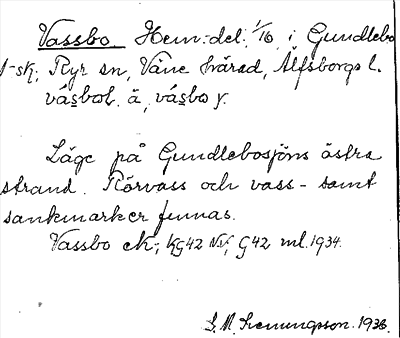 Vassbo Hem:del. 1/16 i Gundlebo
1-sk; Ryr sn, Väne härad, Älfsborgs l.
vásbol. ä, vásbo y.
Läge på Gundlebosjöns östra
strand. Rörvass och vass- samt
sankmarker finnas.
Vassbo ek; KG42 NV, G42 ml. 1934.
1938.